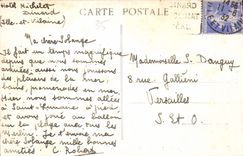 Hotel Michelet
Dinard
(Ille-et-Vilaine)
CARTE POSTALE
DINARD
Ma chère Solange
Je fait un temps magnifique
depuis que nous sommes
arrivés aussi nous jouissons
des plaisirs de la mer:
bains, promenades en mer.
Hier nous sommes allées
à Saint- à pied
et avons joué au ballon
sur la plage avec tous les
Merlin. Je t'envoie ma
chère Solange mille bonnes
amitiés. C.
Mademoiselle S. Danguy
8 rue Gallieni
Versailles
S. et O.